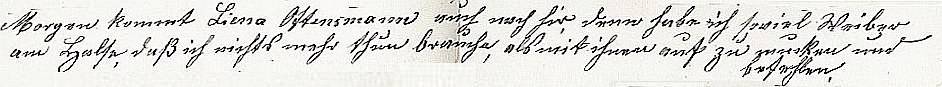 Morgen kommt Liena Ostensmann auch noch hir dann habe ich soviel Weiber
am Halse, daß ich nichts mehr thun brauche, als mit ihnen auf zu und
befehlen.